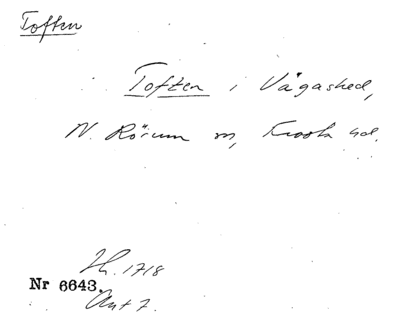 Toften
Toften i Vågashed,
N. Rörum sn, Frosta hd.
Lh. 1718
Nr 6643.
Ant 7.